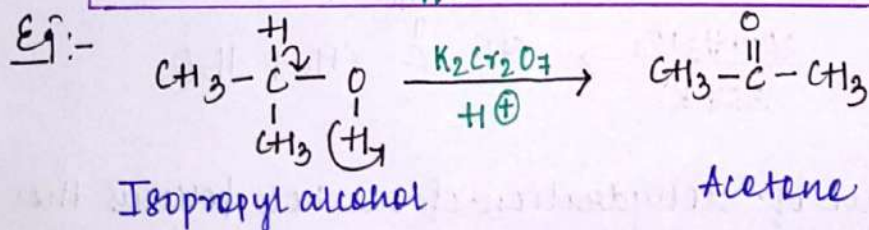 Eg:-
H O
CH3 – C – O K2Cr2O7 CH3 – C – CH3
CH3 H H⊕
Isopropyl alcohol Acetone